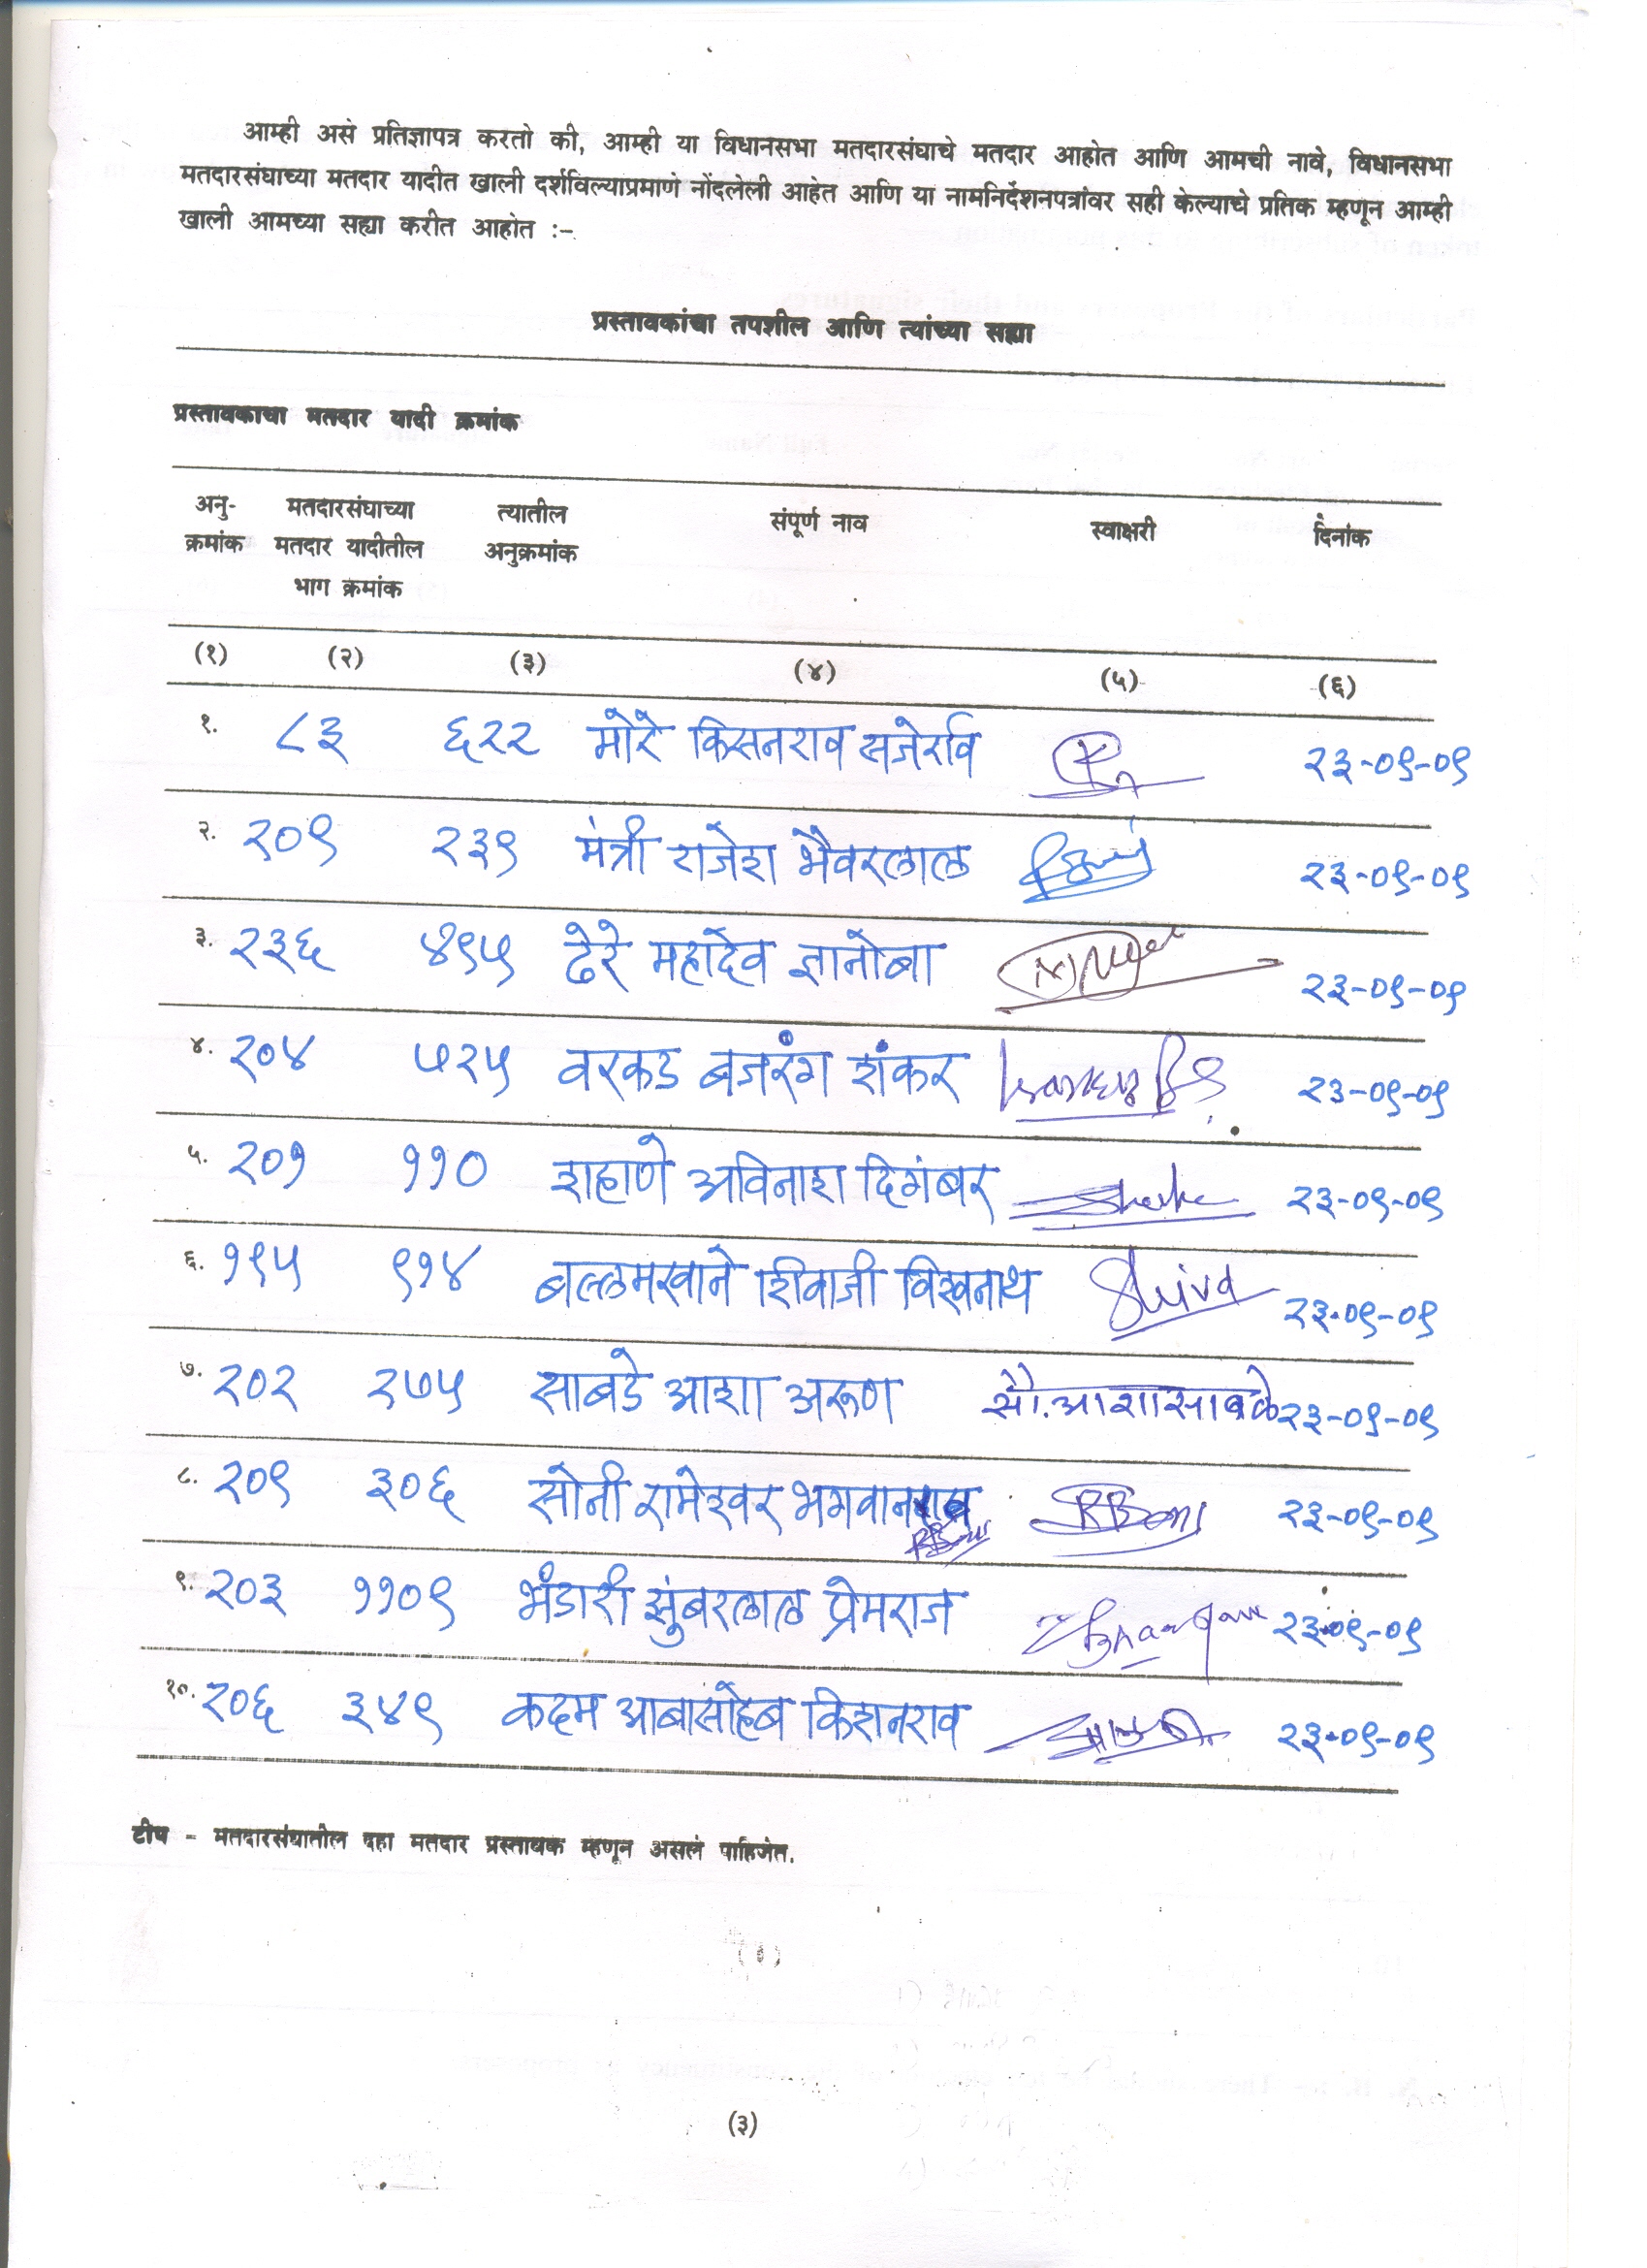 आम्ही असे प्रतिज्ञापत्र करतो की, आम्ही या विधानसभा मतदारसंघाचे मतदार आहोत आणि आमची नावे, विधानसभा
मतदारसंघाच्या मतदार यादीत खाली दर्शविल्याप्रमाणे नोंदलेली आहेत आणि या नामनिर्देशनपत्रांवर सही केल्याचे प्रतिक म्हणून आम्ही
खाली आमच्या सह्या करीत आहोत :–
प्रस्तावकांचा तपशील आणि त्यांच्या सह्या
प्रस्तावकाचा मतदार यादी क्रमांक
अनु- मतदारसंघाच्या त्यातील संपूर्ण नाव स्वाक्षरी दिनांक
क्रमांक मतदार यादीतील अनुक्रमांक
भाग क्रमांक
(१) (२) (३) (४) (५) (६)
१. ८३ ६२२ मोरे किसनराव सर्जेराव २३-०९-०९
२. २०९ २३९ मंत्री राजेश भँवरलाल २३-०९-०९
३. २३६ ४९५ ढेरे महादेव ज्ञानोबा २३-०९-०९
४. २०४ ५२५ वरकड बजरंग शंकर २३-०९-०९
५. २०१ ११० शहाणे अविनाश दिगंबर २३-०९-०९
६. १९५ ९१४ बल्लमखाने शिवाजी विश्वनाथ Shiva २३-०९-०९
७. २०२ २७५ साबडे आशा अरूण सौ.आशा साबळे २३-०९-०९
८. २०९ ३०६ सोनी रामेश्वर भगवानराव RBSoni २३-०९-०९
९. २०३ ११०९ भंडारी झुंबरलाल प्रेमराज २३-०९-०९
१०. २०६ ३४९ कदम आबासाहेब किशनराव २३-०९-०९
टीप – मतदारसंघातील दहा मतदार प्रस्तावक म्हणून असले पाहिजेत.
(३)